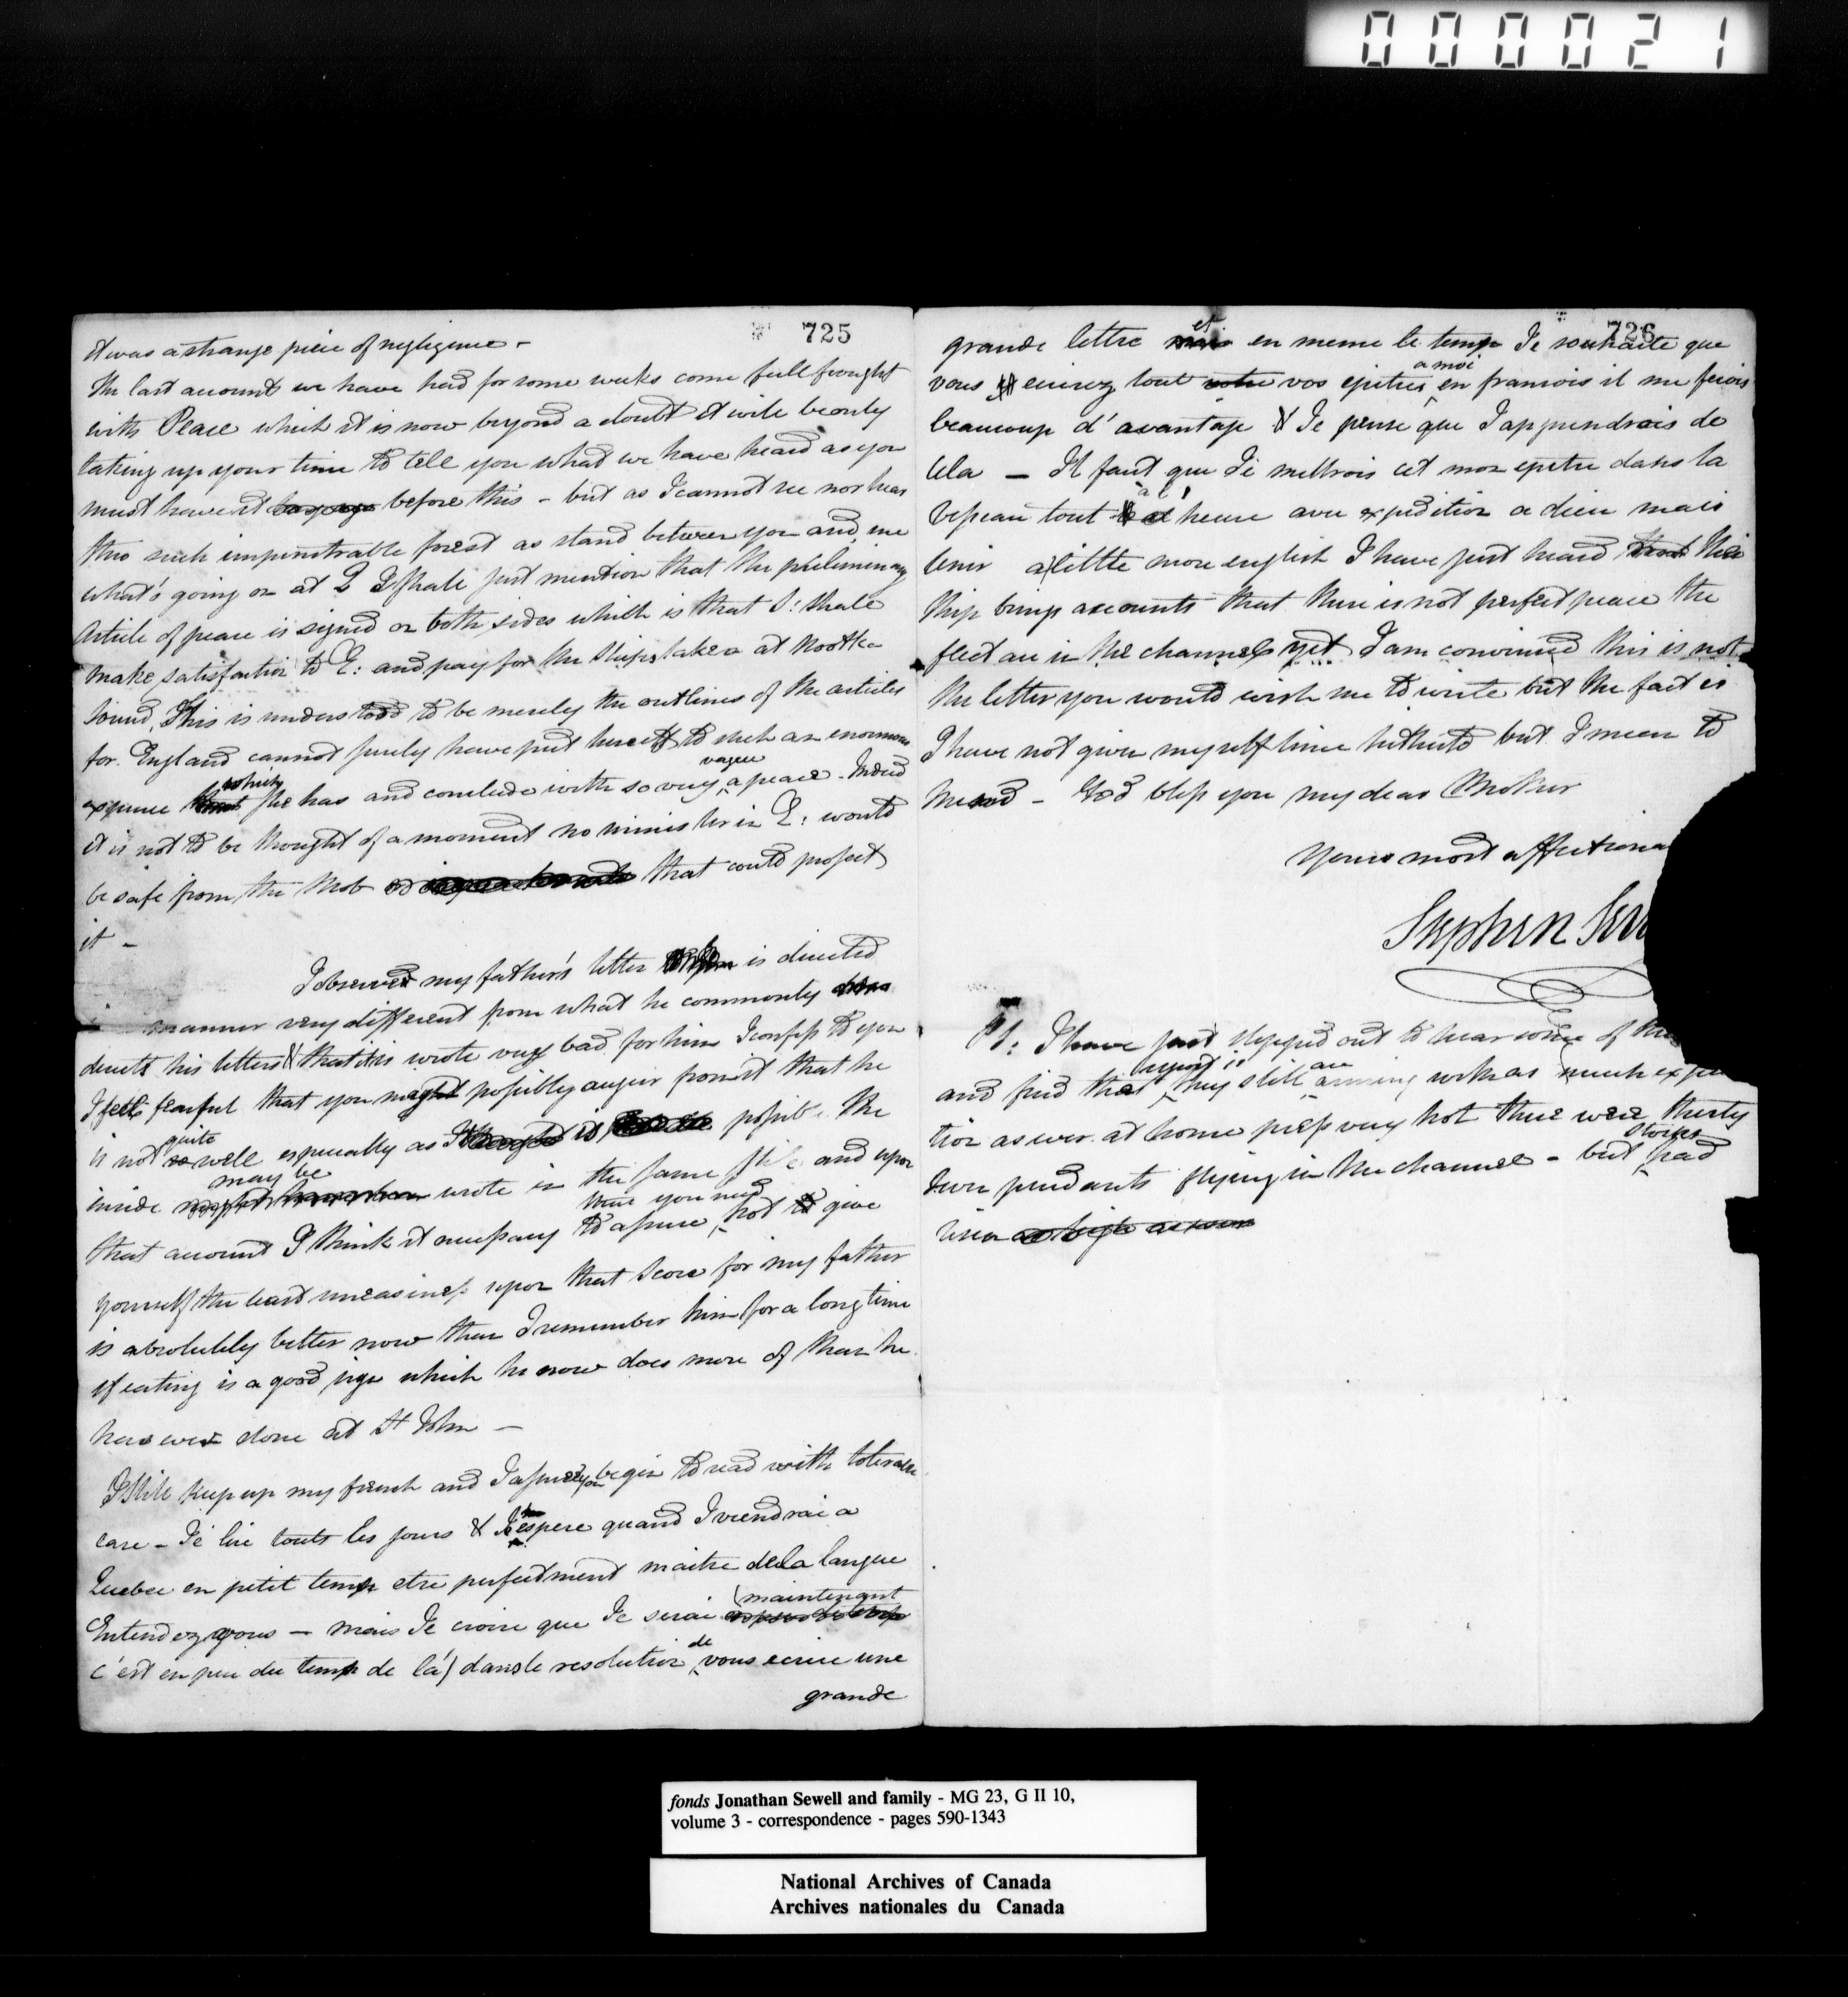 000021
725
it was a strange piece of negligence -
The last account we have had for some weeks come full frought
with Peace which it is now beyond a doubt it will be only
taking up your time to tell you what we have heard as you
must have it before this - but as I cannot see nor hear
thro such impenetrable forest as stand between you and me
what's going on at Q I shall just mention that the preliminary
Article of peace is signed on both sides which is that S: shall
make satisfaction to E: and pay for the ships taken at Nootka
Sound, This is understood to be merely the outlines of the articles
for England cannot surely have put herself to such an enormous
expence which she has and conclude with so very vague a peace. Indeed
it is not to be thought of a moment no minister in E: would
be safe from the Mob that could project
it -
I observed my father's letter is directed
manner very different from what he commonly
directs his letters & that it is wrote very bad for him I confess to you
I feel fearful that you might possibly augur from it that he
is not quite well especially as it is possible the
inside may be wrote in the same stile and upon
that account I think it necessary to assure you need not give
yourself the least uneasiness upon that score for my father
is absolutely better now than I remember him for a long time
if eating is a good sign which he now does more of than he
has ever done at St John -
I still keep up my french and I assure you begin to read with tolerable
ease - Je lire touts les jours & J'espere quand I viendrai a
Quebec en petit temps etre perfectment maitre de la langue
Entendez vous - mais Je croire que Je serai (maintenant
c'est en peu du temps de lá) dans le resolution de vous ecrire une
grande
726
grande lettre et en meme le temps Je souhaite que
vous ecirez tout vos epitres a moi en francois il me ferois
beaucoup d'avantage & Je pense que J apprendrais de
cela - Il faut que Je mettrois cet mon epitre dans la
vesseau tout a l'heure avec expedition a dieu mais
tenir a little more english I have just heard this
ship brings accounts that there is not perfect peace the
fleet are in the channel yet I am convinced this is not
the letter you would wish me to write but the fact is
I have not given myself time hitherto but I mean to
mend - God bless you my dear Mother
Yours most affectiona
Stephen Sew
PS: I have just stepped out to hear some of the
and find that report is they still are arming with as much expedi
tion as ever at home press very hot there were thirty
two pendants flying in the channel - but stocks had
risen
fonds Jonathan Sewell and family - MG 23, G II 10,
volume 3 - correspondence - pages 590-1343
National Archives of Canada
Archives nationales du Canada